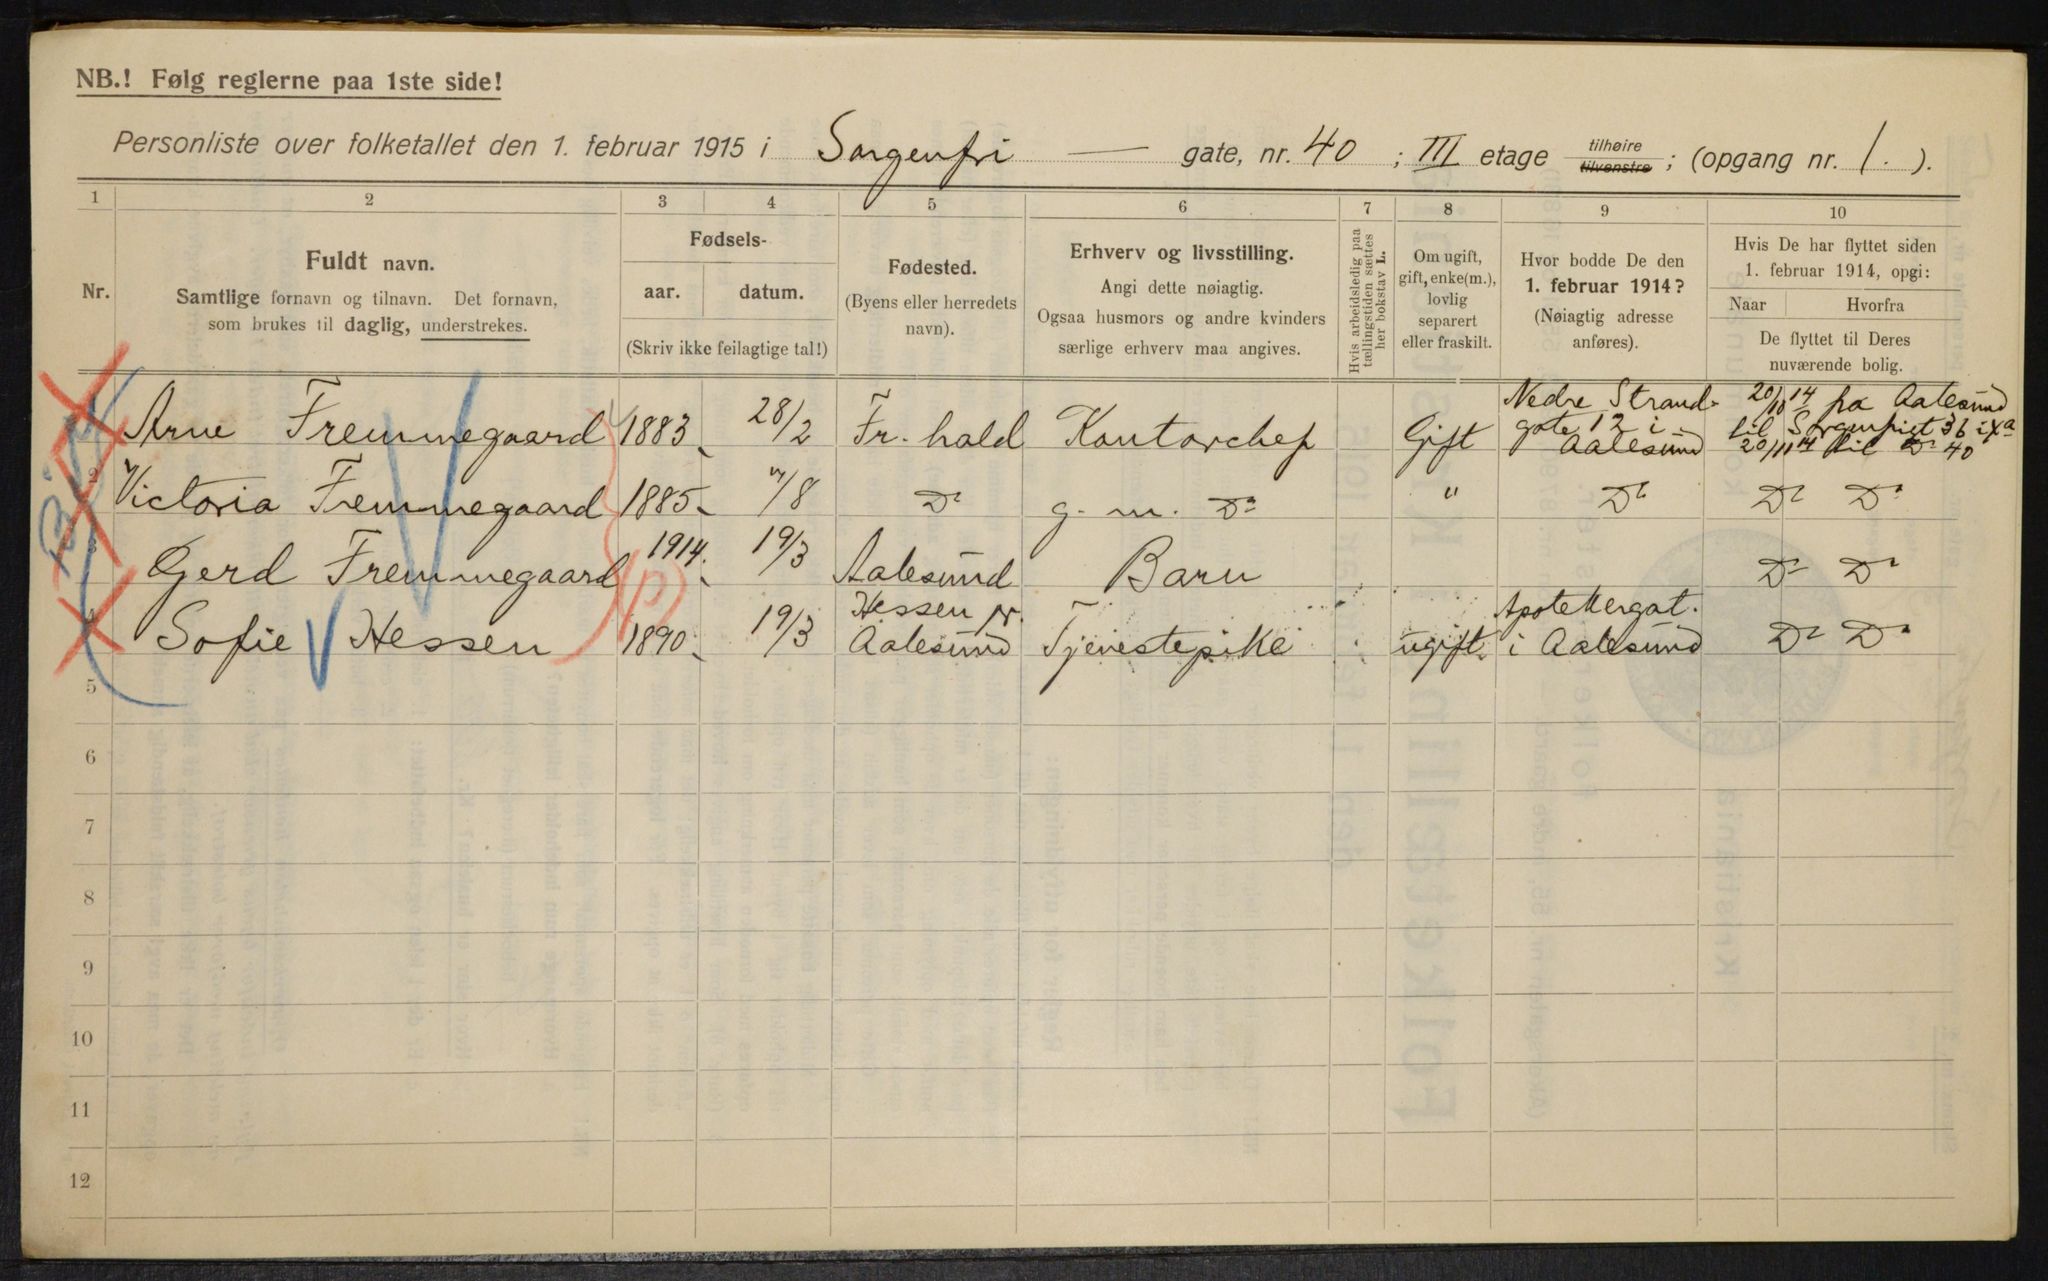 NB.! Følg reglerne paa 1ste side!
Personliste over folketallet den 1. februar 1915 i Sorgenfri — gate, nr. 40 ; III etage tilhøire tilvenstre ; (opgang nr. 1. ).
1 2 3 4 5 6 7 8 9 10
Nr.
Fuldt navn.
Samtlige fornavn og tilnavn. Det fornavn,
som brukes til daglig, understrekes.
Fødsels-
aar. datum.
(Skriv ikke feilagtige tal!)
Fødested.
(Byens eller herredets
navn).
Erhverv og livsstilling.
Angi dette nøiagtig.
Ogsaa husmors og andre kvinders
særlige erhverv maa angives.
Hvis arbeidsledig paa
tællingstiden sættes
her bokstav L.
Om ugift,
gift, enke(m.),
lovlig
separert
eller fraskilt.
Hvor bodde De den
1. februar 1914?
(Nøiagtig adresse
anføres).
Hvis De har flyttet siden
1. februar 1914, opgi:
Naar Hvorfra
De flyttet til Deres
nuværende bolig.
Arne Fremmegaard 1883 28/2 Fr. hald Kontorchef Gift
Nedre Strand-
gate 12 i
Aalesund
20/10 14 fra Aalesund
til Sorgenfrigt 36
20/11 14 til Do 40
2 Victoria Fremmegaard 1885 /8 Do g. m. Do " Do Do Do
3 Gerd Fremmegaard 1914. 19/3 Aalesund Barn Do Do
4 Sofie Hessen 1890 19/3
Hessen pr.
Aalesund
Tjenestepike ugift
Apotekergat.
i Aalesund
Do Do
5
6
7
8
9
10
11
12